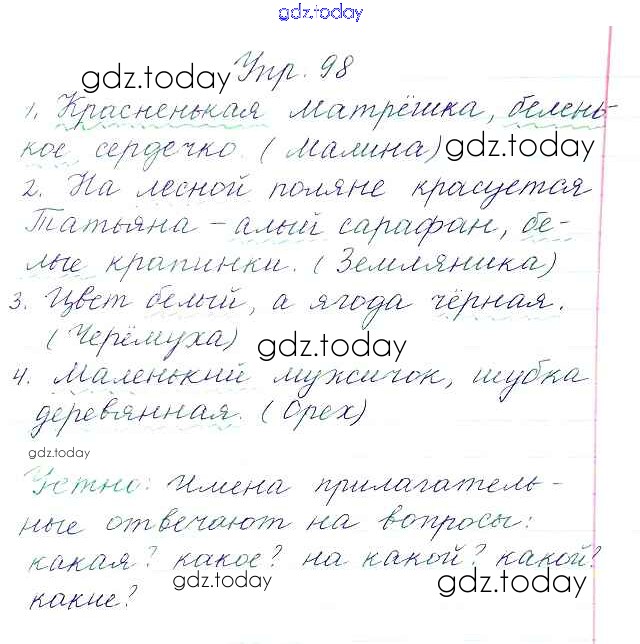 gdz.today
gdz.today Упр. 98
1. Красненькая матрёшка, белень-
кое сердечко. (Малина) gdz.today
2. На лесной поляне красуется
Татьяна - алый сарафан, бе-
лые крапинки. (Земляника)
3. Цвет белый, а ягода чёрная.
(Черёмуха) gdz.today
4. Маленький мужичок, шубка
деревянная. (Орех)
gdz.today
Устно: Имена прилагатель-
ные отвечают на вопросы:
какая? какое? на какой? какой?
какие? gdz.today gdz.today